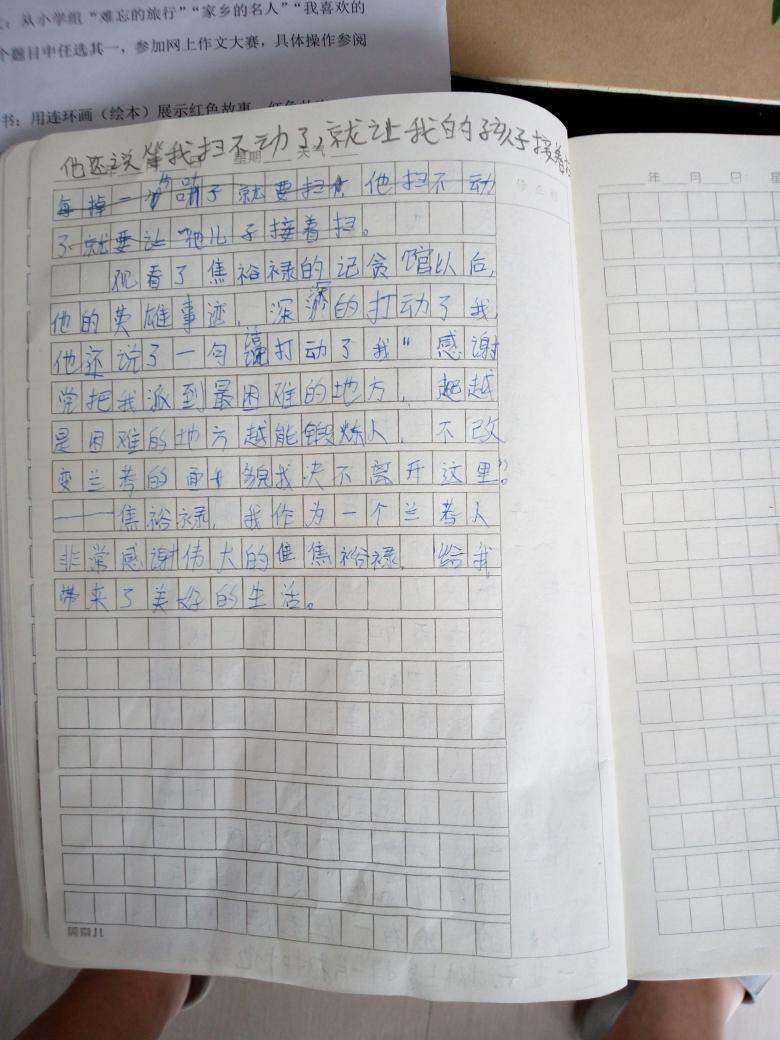 从小学组“难忘的旅行”“家乡的名人”“我喜欢的
个题目中任选其一，参加网上作文大赛，具体操作参阅
书：用连环画（绘本）展示红色故事
他还说等我扫不动了，就让我的孩子接着
星期 天气
年 月 日 星
每掉一 哨子就要扫 他扫不动
了就要让他儿子接着扫。
观看了焦裕禄的记贪馆以后，
他的英雄事迹，深深的打动了我，
他还说了一句话打动了我“感谢
党把我派到最困难的地方，越
是困难的地方越能锻炼人，不改
变兰考的面貌我决不离开这里”。
——焦裕禄，我作为一个兰考人
非常感谢伟大的焦裕禄，给我
带来了美好的生活。